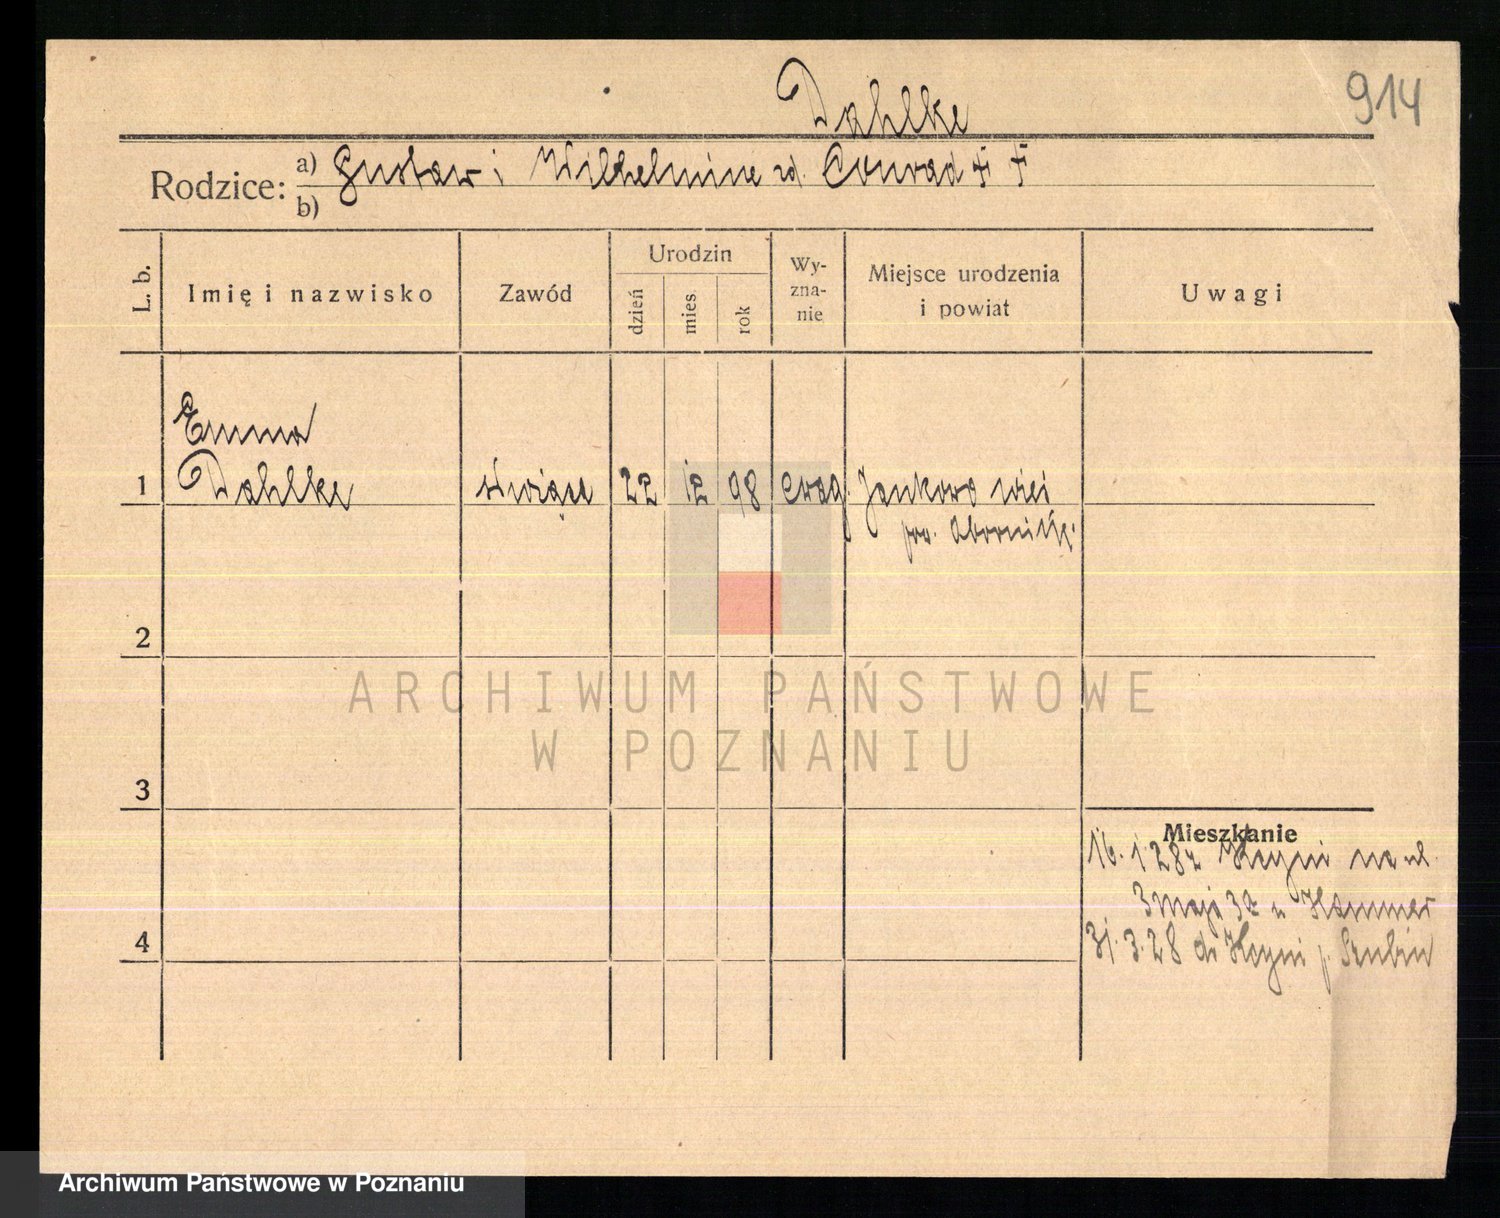 914
Dahlke
Rodzice: a) Gustaw i Wilhelmine zd. Conrad
b)
L. b.
Imię i nazwisko
Zawód
Urodzin
dzień
mies
rok
Wy-
zna-
nie
Miejsce urodzenia
i powiat
Uwagi
Emma
1 Dahlke 22 12 98 ewag. Jankowo
pow.
2
3
4
Mieszkanie
16.1.28 z Kcyni na ul.
3 maja 3a u Hammer
31.3.28 do Kcyni p. Szubin
ARCHIWUM PAŃSTWOWE
W POZNANIU
Archiwum Państwowe w Poznaniu